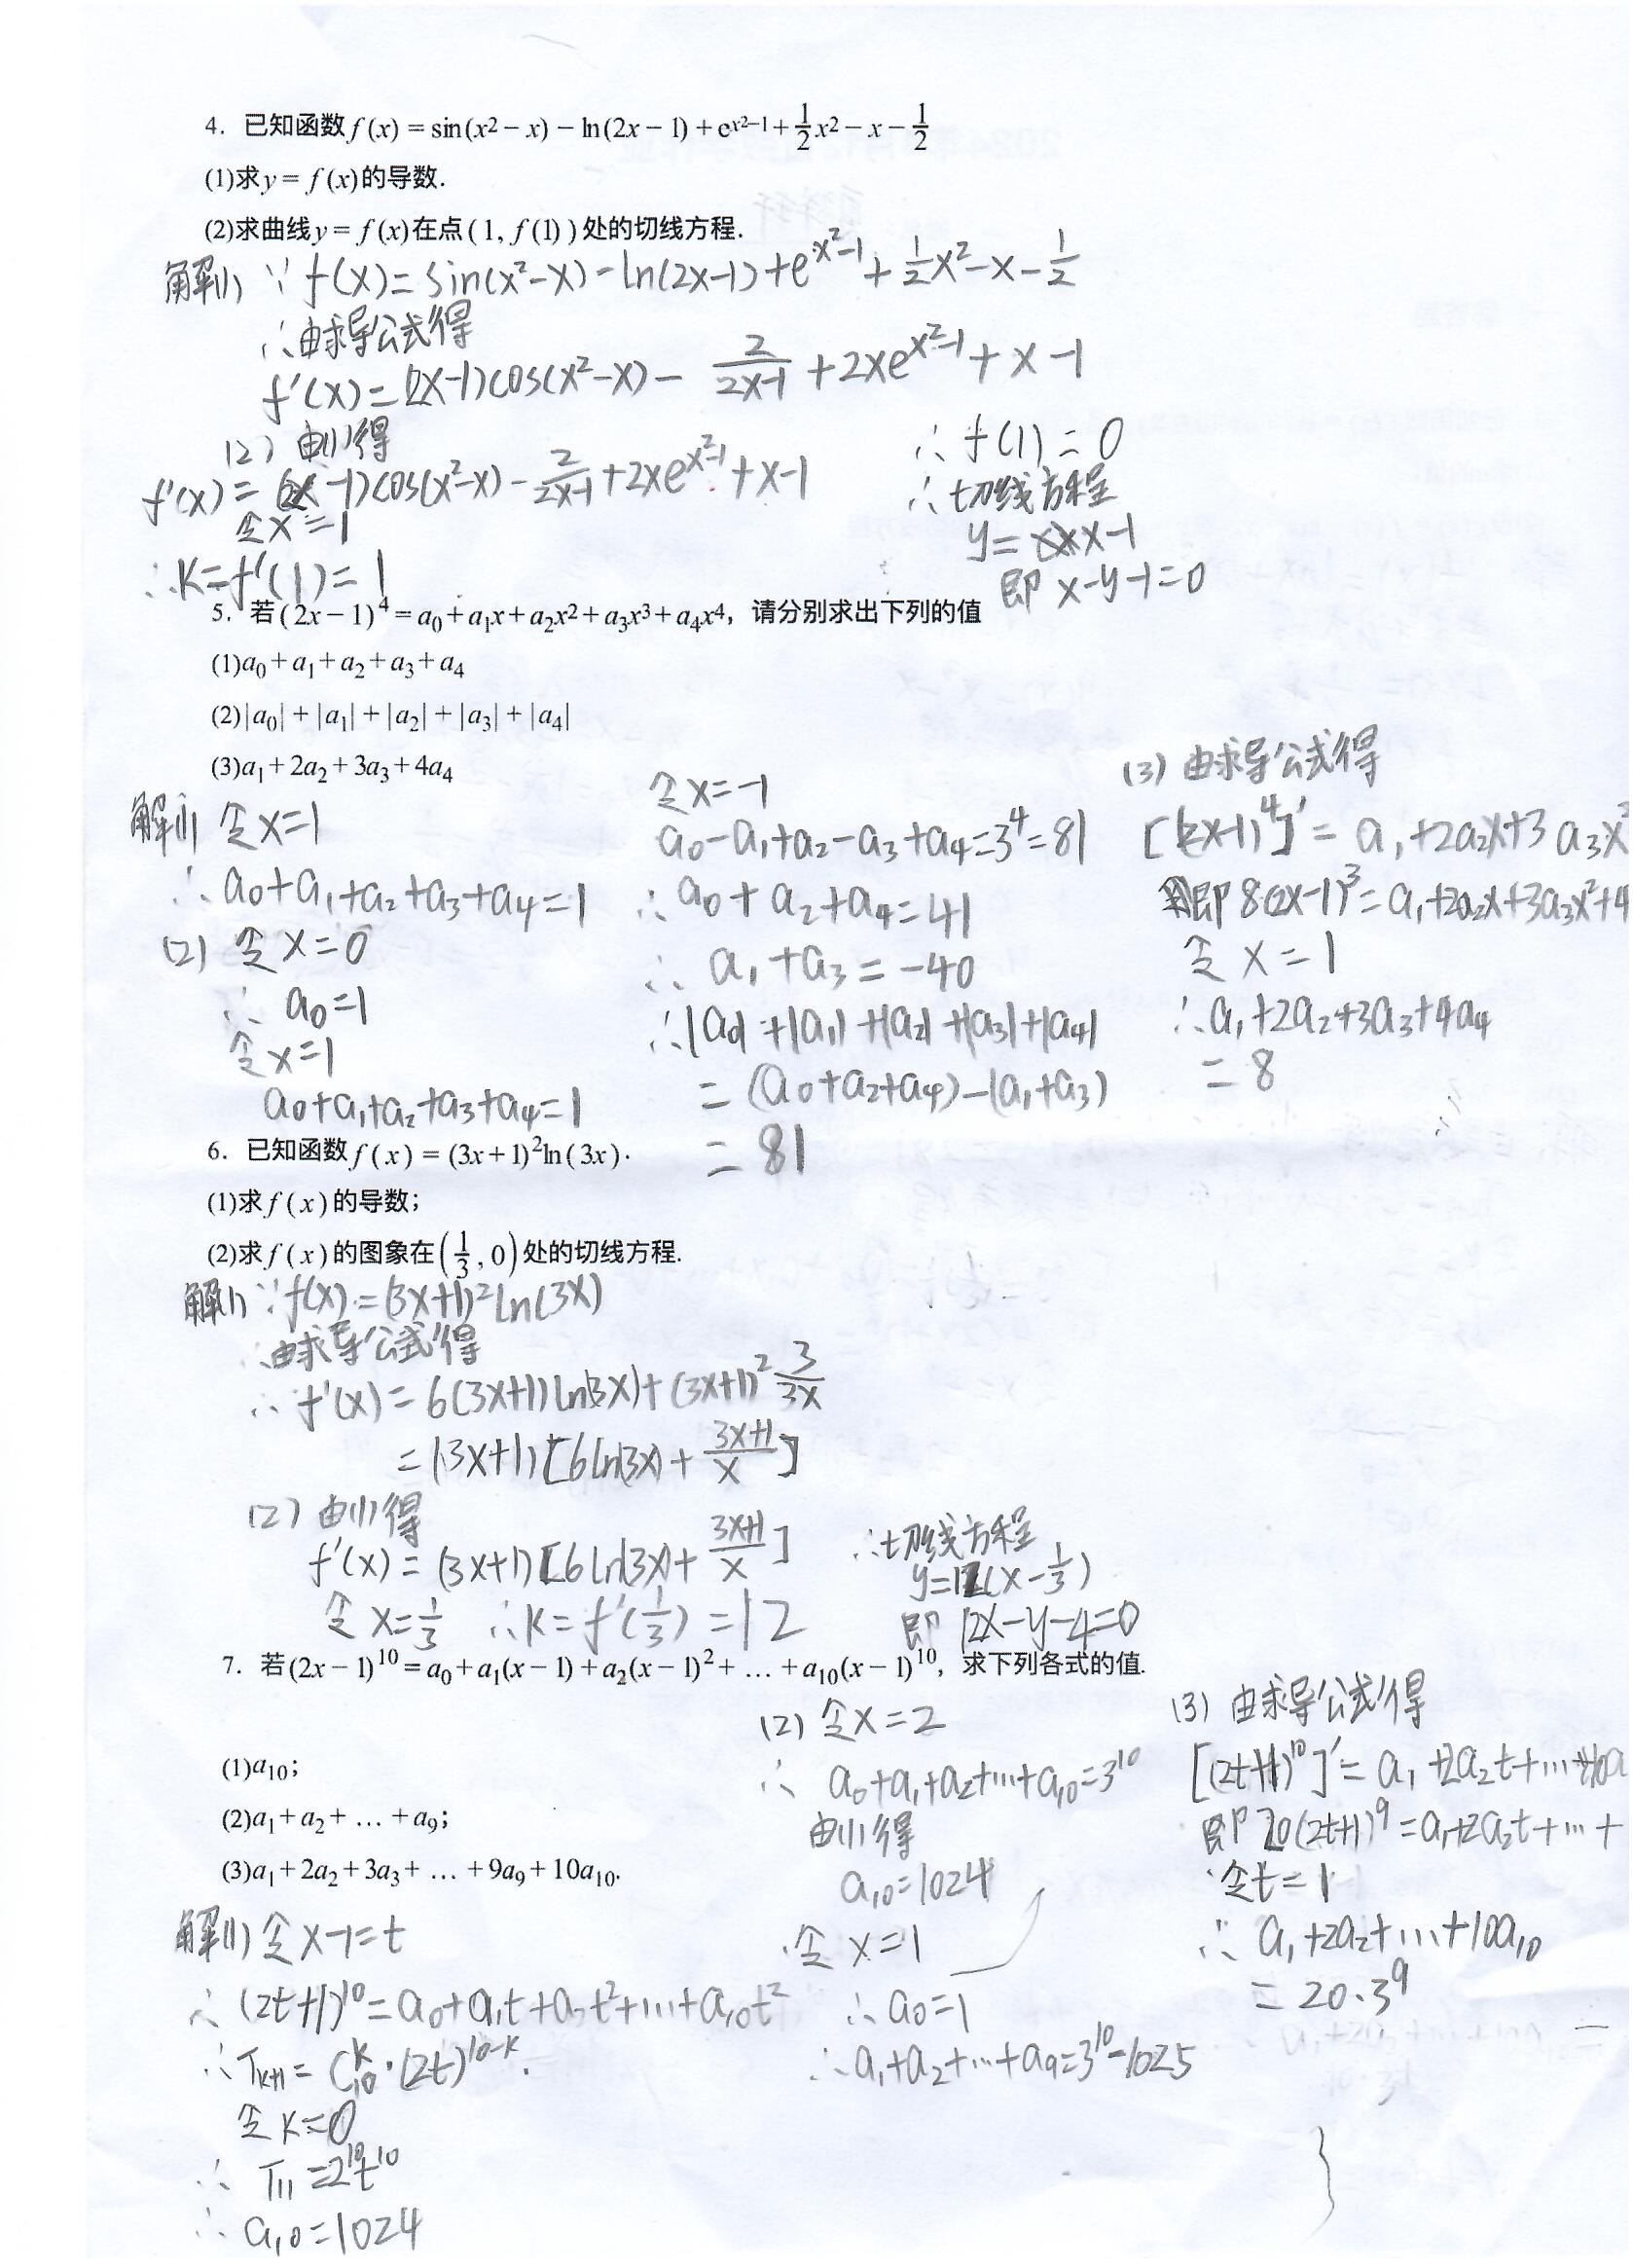 4. 已知函数f(x)=sin(x²-x)-ln(2x-1)+e^{x²-1}+\frac{1}{2}x²-x-\frac{1}{2}
(1)求y=f(x)的导数.
(2)求曲线y=f(x)在点(1,f(1))处的切线方程.
解(1) ∵f(x)=sin(x²-x)-ln(2x-1)+e^{x²-1}+\frac{1}{2}x²-x-\frac{1}{2}
∴由求导公式得
f'(x)=(2x-1)cos(x²-x)-\frac{2}{2x-1}+2xe^{x²-1}+x-1
(2) 由(1)得
f'(x)=(2x-1)cos(x²-x)-\frac{2}{2x-1}+2xe^{x²-1}+x-1
令x=1
∴K=f'(1)=1
∴f(1)=0
∴切线方程
y=x-1
即 x-y-1=0
5. 若(2x-1)^4=a₀+a₁x+a₂x²+a₃x³+a₄x⁴，请分别求出下列的值
(1)a₀+a₁+a₂+a₃+a₄
(2)|a₀|+|a₁|+|a₂|+|a₃|+|a₄|
(3)a₁+2a₂+3a₃+4a₄
解(1) 令x=1
∴a₀+a₁+a₂+a₃+a₄=1
(2) 令x=0
∴a₀=1
令x=1
a₀+a₁+a₂+a₃+a₄=1
令x=-1
a₀-a₁+a₂-a₃+a₄=3⁴=81
∴a₀+a₂+a₄=41
∴a₁+a₃=-40
∴|a₀|+|a₁|+|a₂|+|a₃|+|a₄|
=(a₀+a₂+a₄)-(a₁+a₃)
=81
(3) 由求导公式得
[(2x-1)^4]'=a₁+2a₂x+3a₃x²
即8(2x-1)³=a₁+2a₂x+3a₃x²+4
令x=1
∴a₁+2a₂+3a₃+4a₄
=8
6. 已知函数f(x)=(3x+1)²ln(3x).
(1)求f(x)的导数;
(2)求f(x)的图象在(\frac{1}{3},0)处的切线方程.
解(1) ∵f(x)=(3x+1)²ln(3x)
∴由求导公式得
∴f'(x)=6(3x+1)ln(3x)+(3x+1)²\frac{3}{3x}
=(3x+1)[6ln(3x)+\frac{3x+1}{x}]
(2) 由(1)得
f'(x)=(3x+1)[6ln(3x)+\frac{3x+1}{x}]
令x=\frac{1}{3} ∴K=f'(\frac{1}{3})=12
∴切线方程
y=12(x-\frac{1}{3})
即 12x-y-4=0
7. 若(2x-1)^{10}=a₀+a₁(x-1)+a₂(x-1)²+…+a₁₀(x-1)^{10}，求下列各式的值.
(1)a₁₀;
(2)a₁+a₂+…+a₉;
(3)a₁+2a₂+3a₃+…+9a₉+10a₁₀.
解(1) 令x-1=t
∴(2t+1)^{10}=a₀+a₁t+a₂t²+…+a₁₀t²
∴T_{k+1}=C_{10}^{k}·(2t)^{10-k}.
令k=0
∴T₁₁=2^{10}t^{10}
∴a₁₀=1024
(2) 令x=2
∴a₀+a₁+a₂+…+a₁₀=3^{10}
由(1)得
a₁₀=1024
令x=1
∴a₀=1
∴a₁+a₂+…+a₉=3^{10}-1025
(3) 由求导公式得
[(2t+1)^{10}]'=a₁+2a₂t+…+10a
即20(2t+1)^9=a₁+2a₂t+…+
令t=1
∴a₁+2a₂+…+10a₁₀
=20·3^9